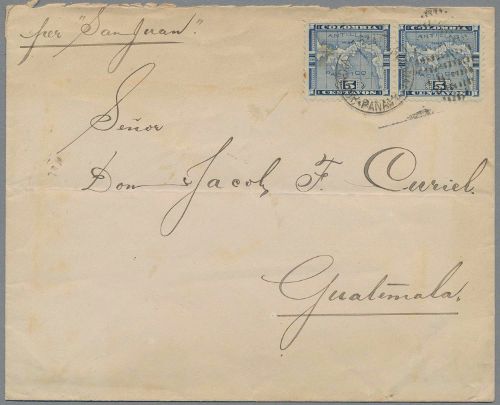 per "San Juan".
COLOMBIA
COLOMBIA
5
CENTAVOS
5
CENTAVOS
PANAMA
Señor
Don Jacob F. Curiel.
Guatemala.